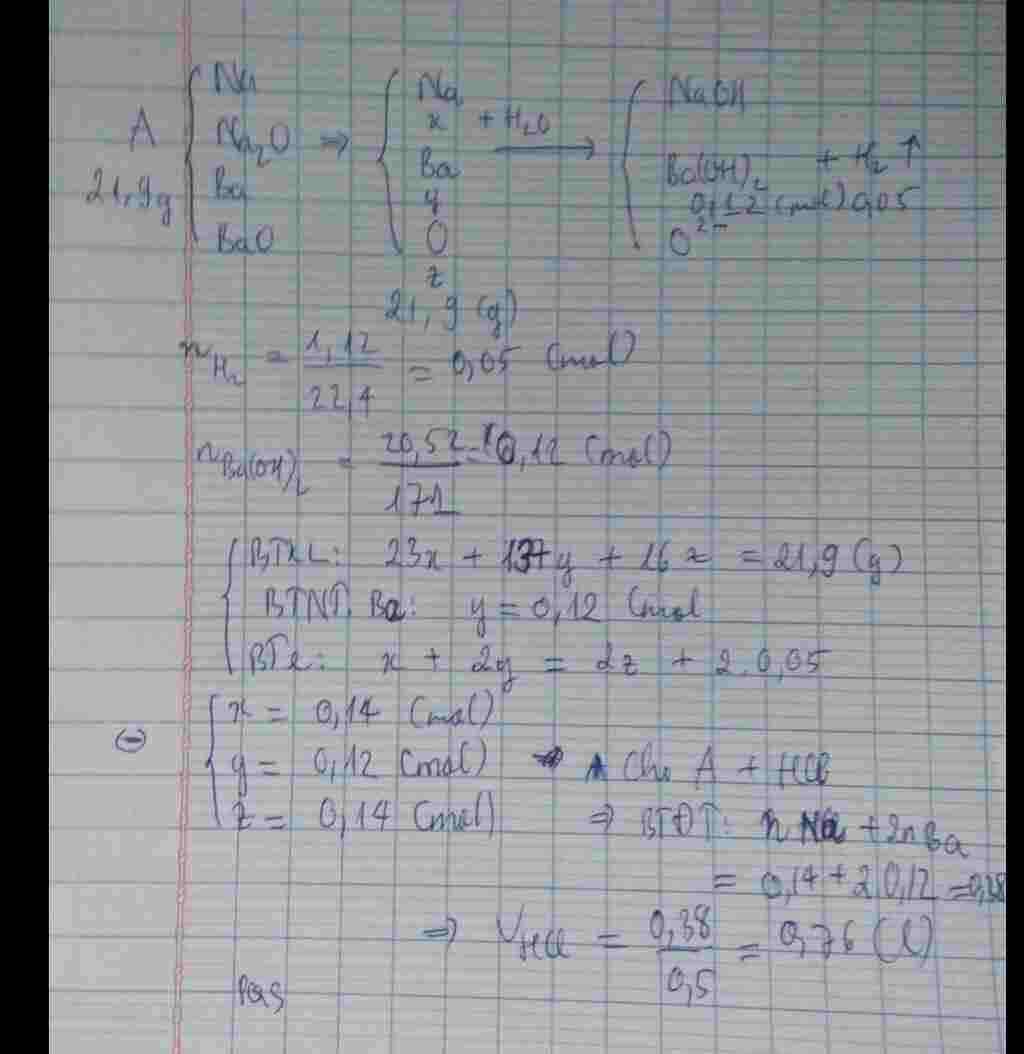 A 21,9g { Na Na2O Ba BaO ⇒ { Na x Ba y O z 21,9 (g) + H2O → { NaOH Ba(OH)2 0,12 (mol) O2- + H2 ↑ 0,05
nH2 = 1,12 / 22,4 = 0,05 (mol)
nBa(OH)2 = 20,52 / 171 = 0,12 (mol)
BTKL: 23x + 137y + 16z = 21,9 (g)
BTNT Ba: y = 0,12 (mol
BTe: x + 2y = 2z + 2.0,05
x = 0,14 (mol)
y = 0,12 (mol) Cho A + HCl
z = 0,14 (mol) ⇒ BTĐT: n Na + 2nBa
= 0,14 + 2.0,12 = 0,38
⇒ VHCl = 0,38 / 0,5 = 0,76 (l)